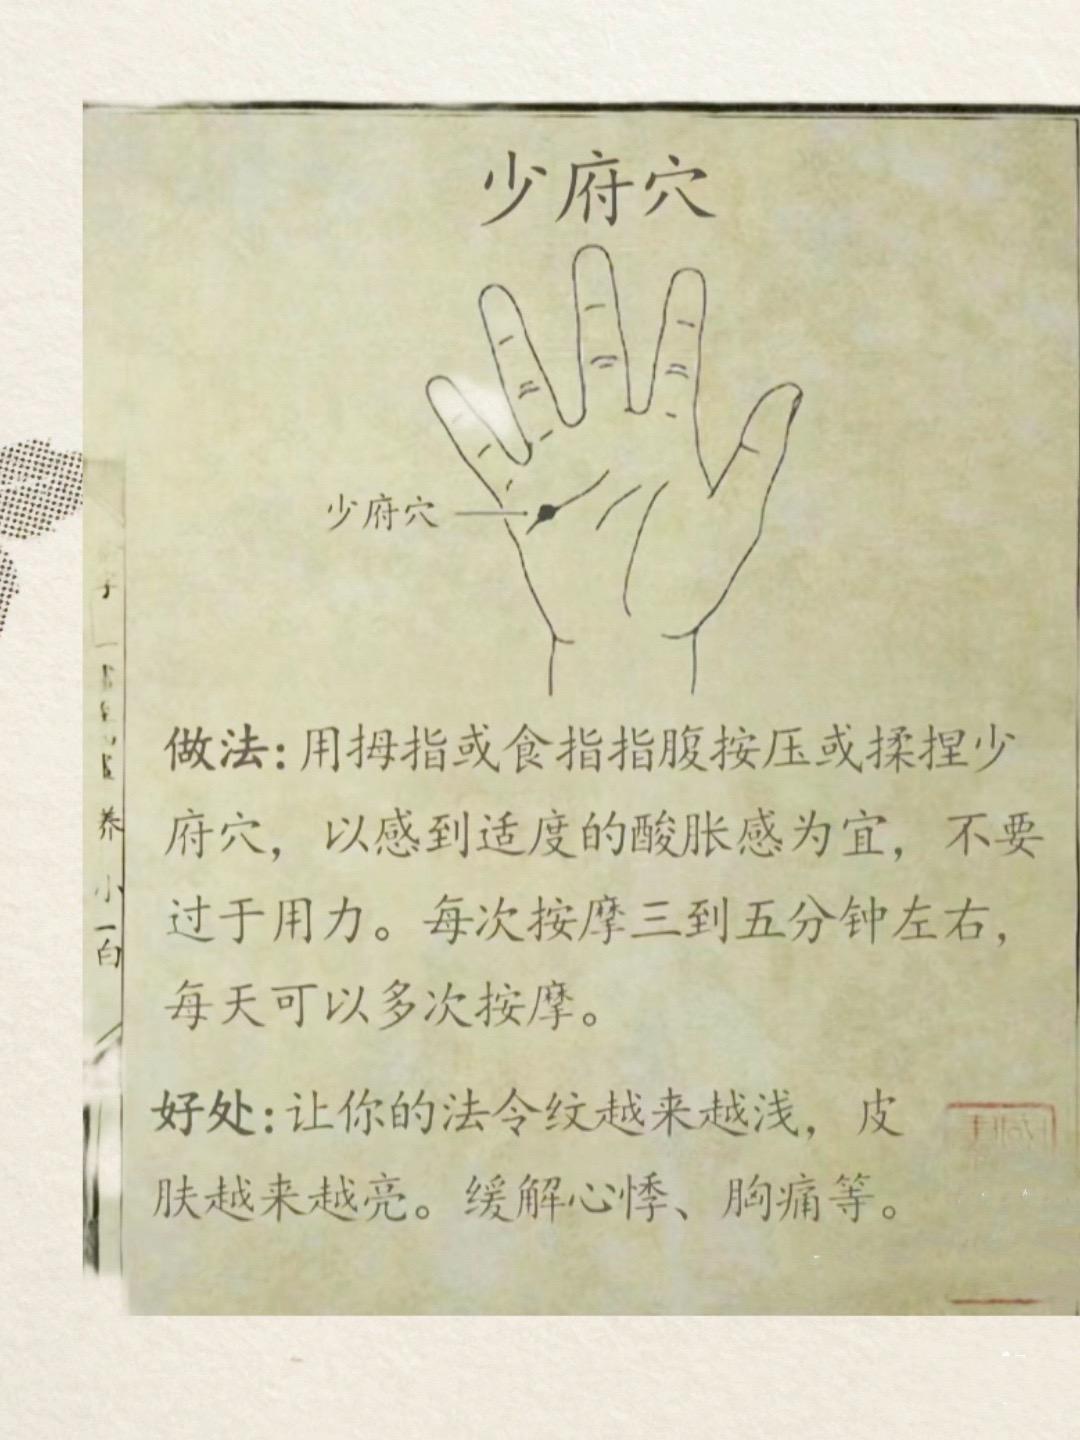 少府穴
少府穴
做法：用拇指或食指指腹按压或揉捏少
府穴，以感到适度的酸胀感为宜，不要
过于用力。每次按摩三到五分钟左右，
每天可以多次按摩。
好处：让你的法令纹越来越浅，皮
肤越来越亮。缓解心悸、胸痛等。
养
小
白